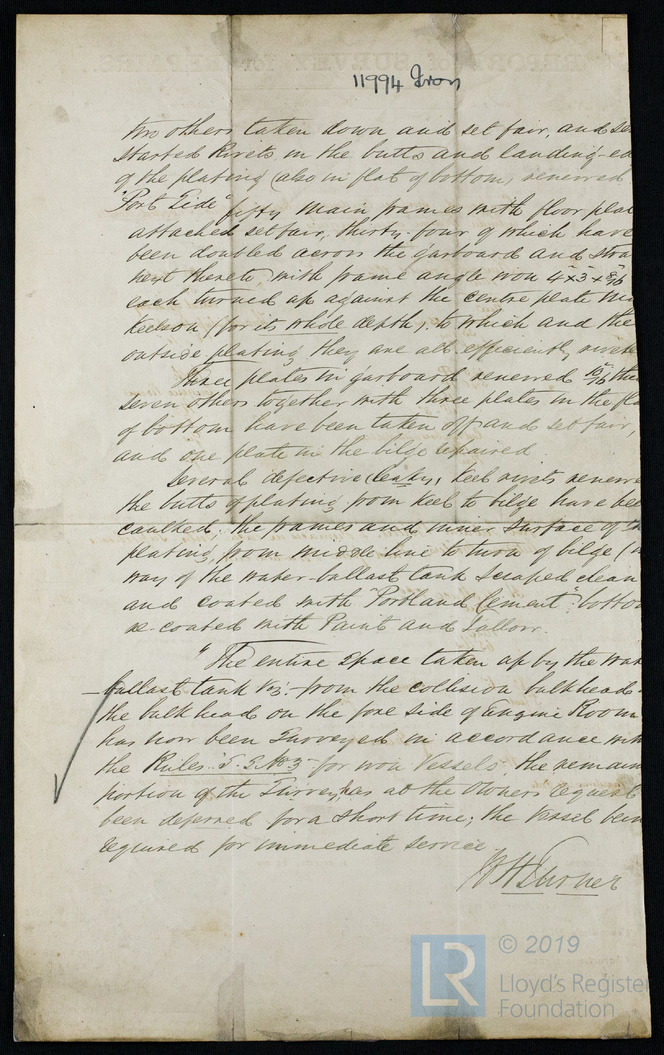 11994 Iron
two others taken down and set fair, and
started Rivets in the butts and landing-ed
of the plating (also in flat of bottom) renewed
"Port Side" fifty main frames with floor plat
attached set fair, thirty-four of which have
been doubled across the garboard and stra
next thereto with frame angle iron 4"x3"x
each turned up against the centre plate
Keelson (for its whole depth), to which and the
outside plating they are all efficiently rivete
Three plates in garboard renewed 10/16 thi
seven others together with three plates in the fla
of bottom have been taken off and set fair,
and one plate in the bilge repaired.
Several defective (leaky) Keel rivets renewe
the butts of plating from Keel to bilge have bee
caulked; the frames and inner Surface of
plating from middle line to turn of bilge (in
way of the water-ballast tank scraped clean
and coated with "Portland Cement": botto
re-coated with Paint and Tallow.
"The entire space taken up by the wat
ballast tank viz: from the collision bulkhead
the bulkhead on the fore side of Engine Room
has now been Surveyed in accordance wit
the Rules S.S. No 3 for iron Vessels, the remain
portion of the Survey has at the Owners request
been deferred for a short time; the Vessel bein
required for immediate service
W H Turner
LR © 2019
Lloyd's Register
Foundation